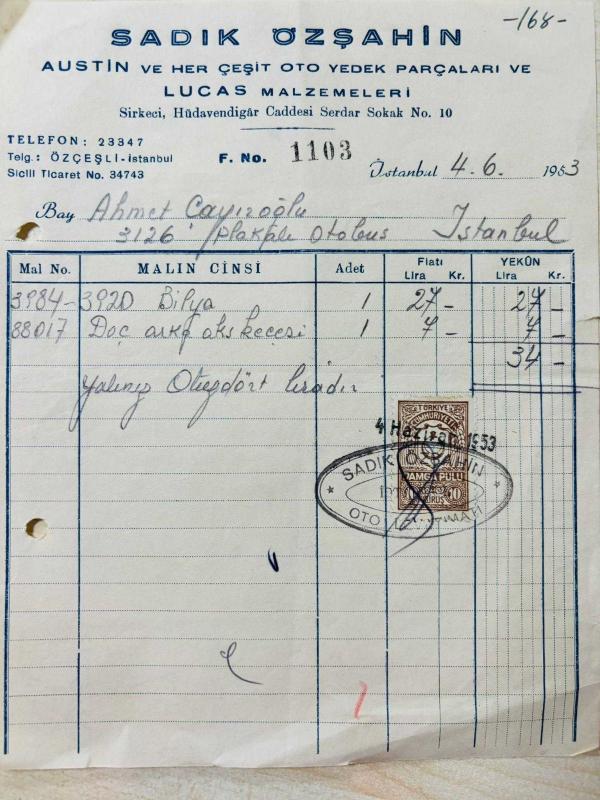 -168-
SADIK ÖZŞAHİN
AUSTİN VE HER ÇEŞİT OTO YEDEK PARÇALARI VE
LUCAS MALZEMELERİ
Sirkeci, Hüdavendigâr Caddesi Serdar Sokak No. 10
TELEFON: 23347
Telg.: ÖZÇEŞLİ-İstanbul
Sicili Ticaret No. 34743
F. No. 1103
İstanbul 4.6. 1953
Bay Ahmet Cayıroğlu
3126 plakalı otobus İstanbul
Mal No. MALIN CİNSİ Adet Fiatı Lira Kr. YEKÛN Lira Kr.
3984- 3920 Bilya 1 27 - 27 -
88017 Doç arka aks keçesi 1 7 - 7 -
34 -
Yalınız Otuzdört liradır
TÜRKİYE
CUMHURİYETİ
4 Haziran 1953
SADIK ÖZŞAHİN
DAMGA PULU
10 KURUŞ 10
OTO